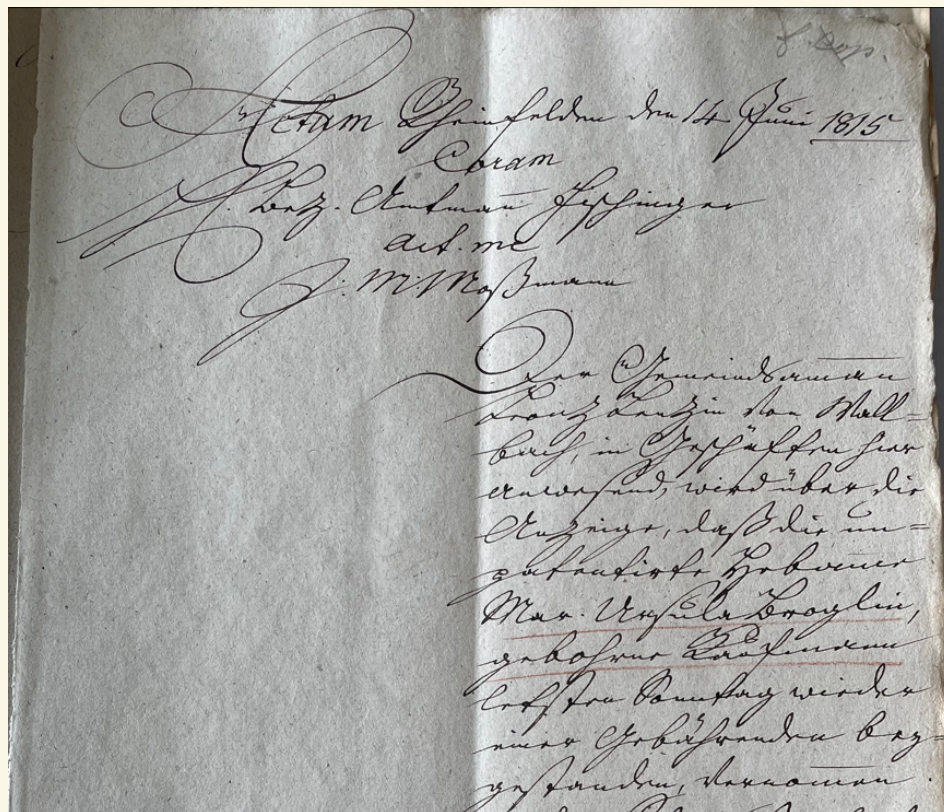 Actum Rheinfelden den 14 Juni 1815
Coram
H. Bez. Amtman̅ Fischinger
act. me
J. M. Moßmann
Der Gemeindsam̅an
Franz Kenzin von Wall=
bach, in Geschäften hier
anwesend, wird über die
Anzeige, daß die un=
patentirte Hebam̅e
Mar. Ursula Broglin,
gebohrne Kaufmann
letsten Sonntag wieder
einer Gebährenden bey=
gestanden, vernom̅en.